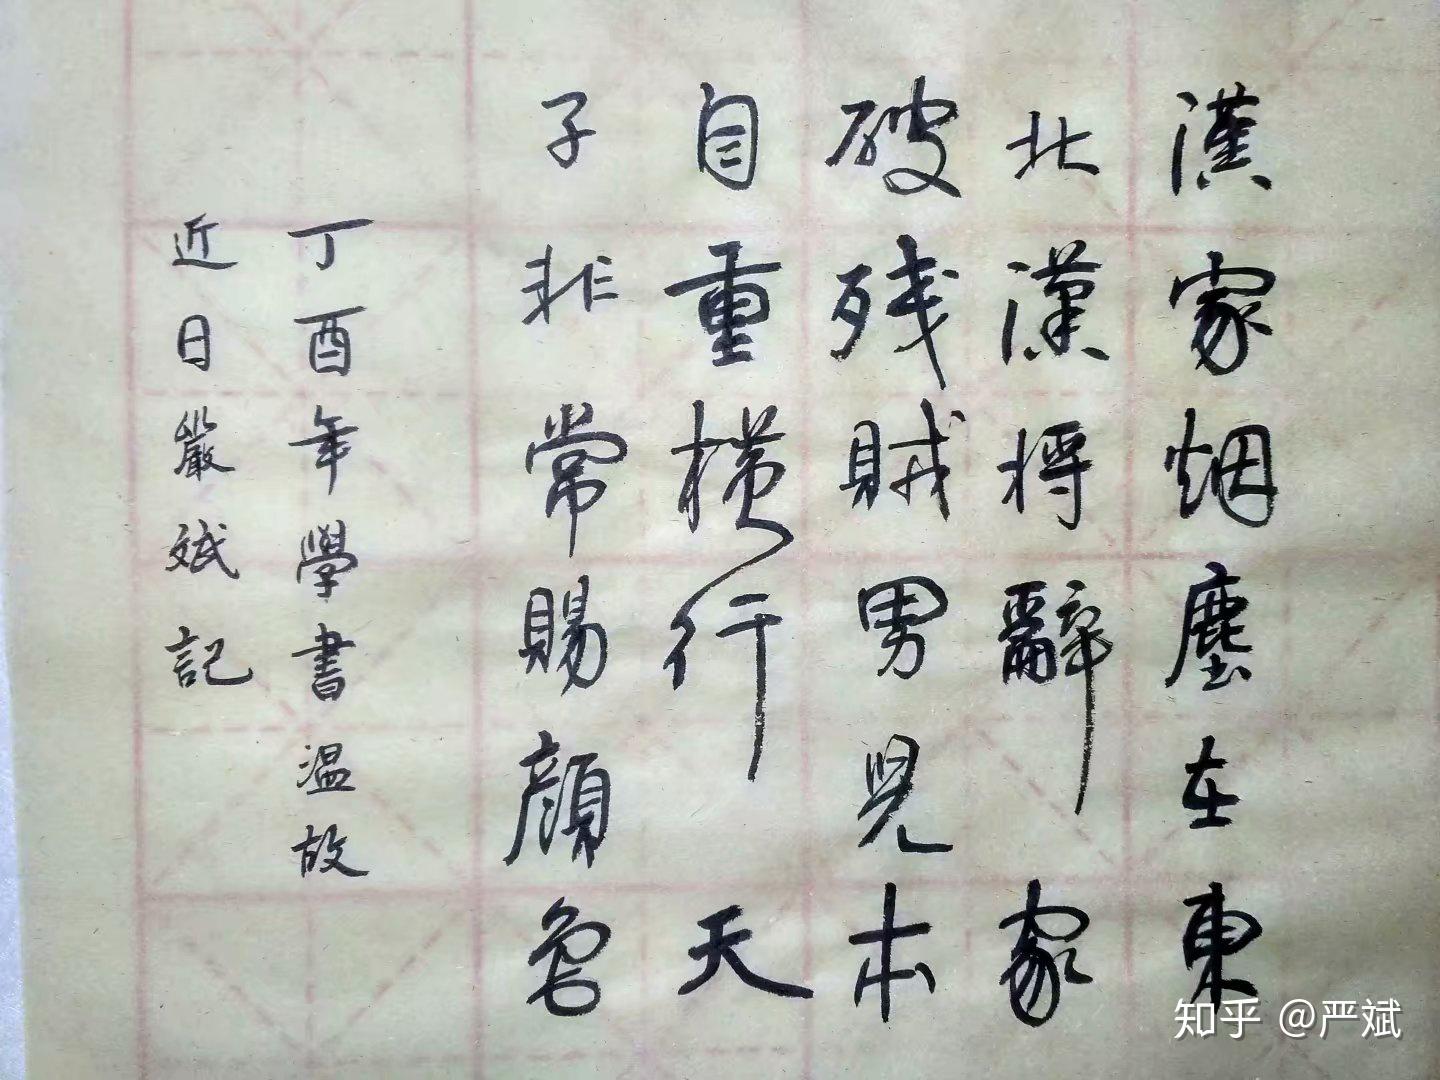 漢家烟塵在東
北漢将辭家
破残賊男児本
自重横行天
子非常賜顔色
丁酉年學書温故
近日嚴斌記
知乎 @严斌